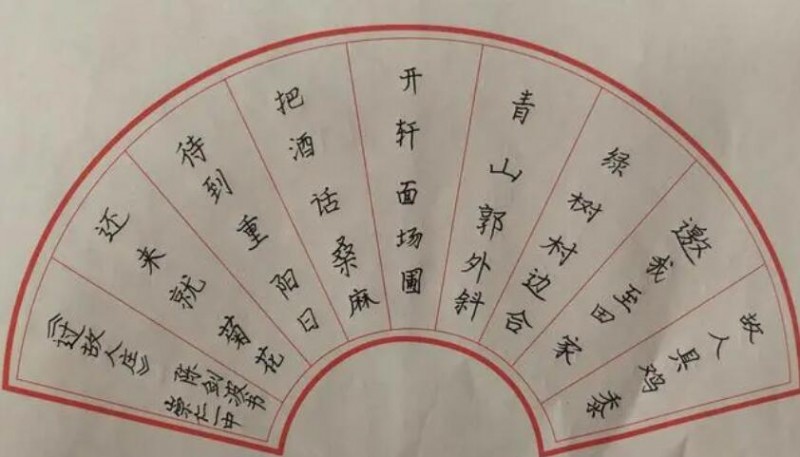 故人具鸡黍
邀我至田家
绿树村边合
青山郭外斜
开轩面场圃
把酒话桑麻
待到重阳日
还来就菊花
《过故人庄》
陈剑波书
崇仁一中